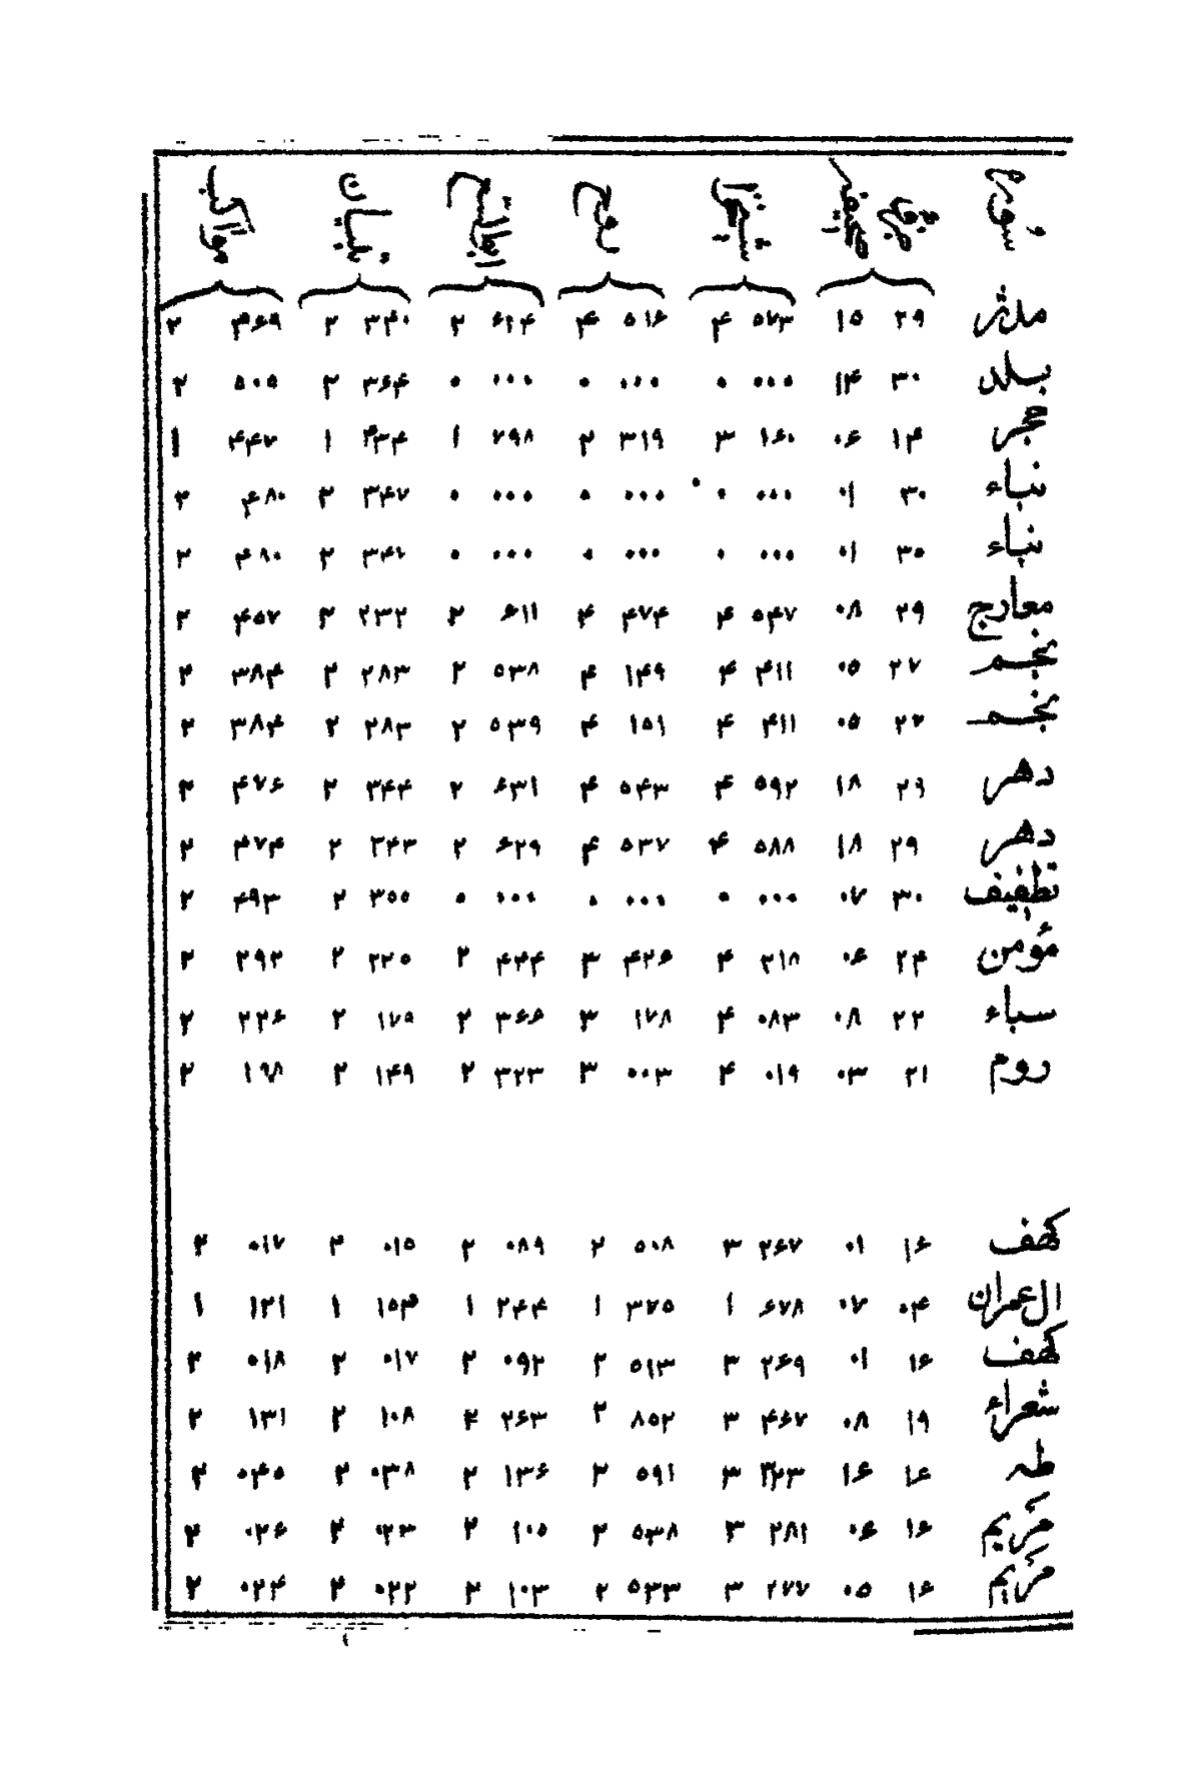 مدثر ۲۹ ۱۵ ۵۷۳ ۴ ۵۱۶ ۴ ۶۲۴ ۲ ۳۴۰ ۲ ۴۶۹ ۲
بلد ۳۰ ۱۴ ۰۰۰ ۰ ۰۰۰ ۰ ۰۰۰ ۰ ۳۶۴ ۲ ۵۰۵ ۲
حجر ۱۴ ۰۶ ۱۶۰ ۳ ۳۱۹ ۲ ۷۹۸ ۱ ۴۳۴ ۱ ۴۴۷ ۱
نباء ۳۰ ۰۱ ۰۰۰ ۰ ۰۰۰ ۰ ۰۰۰ ۰ ۳۴۷ ۲ ۴۸۰ ۲
نباء ۳۰ ۰۱ ۰۰۰ ۰ ۰۰۰ ۰ ۰۰۰ ۰ ۲ ۴۸۰ ۲
معارج ۲۹ ۰۸ ۵۴۷ ۴ ۴۷۴ ۴ ۶۱۱ ۲ ۲ ۴۵۷ ۲
نجم ۲۷ ۰۵ ۴۱۱ ۴ ۱۴۹ ۴ ۵۳۸ ۲ ۲۸۳ ۲ ۳۸۴ ۲
نجم ۲۷ ۰۵ ۴۱۱ ۴ ۱۵۱ ۴ ۵۳۹ ۲ ۲۸۳ ۲ ۳۸۴ ۲
دهر ۲۹ ۱۸ ۵۹۲ ۴ ۵۴۳ ۴ ۶۳۱ ۲ ۳۴۴ ۲ ۴۷۶ ۲
دهر ۲۹ ۱۸ ۵۸۸ ۴ ۵۳۷ ۴ ۶۲۹ ۲ ۳۴۳ ۲ ۴۷۴ ۲
تطفیف ۳۰ ۰۷ ۰۰۰ ۰ ۰۰۰ ۰ ۰۰۰ ۰ ۳۵۵ ۲ ۴۹۳ ۲
مؤمن ۲۴ ۰۶ ۴ ۴۲۶ ۳ ۴۴۴ ۲ ۲۲۵ ۲ ۲۹۲ ۲
سباء ۲۲ ۰۸ ۰۸۳ ۴ ۱۷۸ ۳ ۳۶۶ ۲ ۱۷۵ ۲ ۲۲۶ ۲
روم ۲۱ ۰۳ ۰۱۹ ۴ ۰۰۳ ۳ ۳۲۳ ۲ ۱۴۹ ۲ ۱۹۸ ۲
کهف ۱۶ ۰۱ ۲۶۷ ۳ ۵۰۸ ۲ ۰۸۹ ۲ ۰۱۵ ۲ ۰۱۷ ۲
ال عمران ۰۴ ۰۷ ۶۷۸ ۱ ۳۷۵ ۱ ۲۴۴ ۱ ۱۵۳ ۱ ۱۲۱ ۱
کهف ۱۶ ۰۱ ۲۶۹ ۳ ۵۱۳ ۲ ۰۹۲ ۲ ۰۱۷ ۲ ۰۱۸ ۲
شعراء ۱۹ ۰۸ ۴۶۷ ۳ ۸۵۲ ۲ ۲۶۳ ۲ ۱۰۸ ۲ ۱۳۱ ۲
طه ۱۶ ۱۶ ۳ ۵۹۱ ۲ ۱۳۶ ۲ ۰۳۸ ۲ ۰۴۵ ۲
مریم ۱۶ ۰۶ ۲۸۱ ۳ ۵۳۸ ۲ ۱۰۵ ۲ ۰۲۳ ۲ ۰۲۶ ۲
مریم ۱۶ ۰۵ ۲۷۷ ۳ ۵۳۳ ۲ ۱۰۳ ۲ ۰۲۲ ۲ ۰۲۴ ۲